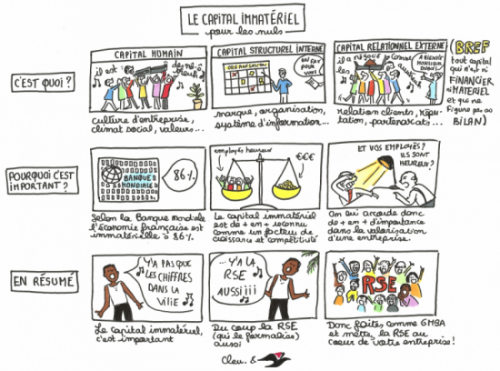 LE CAPITAL IMMATÉRIEL
pour les nuls
C'EST QUOI ?
CAPITAL HUMAIN
il est
des nô-ô
tres!!
culture d'entreprise,
climat social, valeurs...
CAPITAL STRUCTUREL INTERNE
ORGANISATION
ON EST
POUR
VOUS!
marque, organisation,
système d'information...
CAPITAL RELATIONNEL EXTERNE
Relation clients, Répu-
tation, partenariats...
(BREF
tout capital
qui n'est ni
FINANCIER
ni MATERIEL
et qui ne
Figure pas au
BILAN)
POURQUOI C'EST
IMPORTANT ?
BANQUE
MONDIALE
86%
Selon la Banque Mondiale
l'économie française est
immatérielle à 86%
employés heureux
€€€
Le capital immatériel
est de + en + reconnu
comme un facteur de
croissance et compétitivité
ET VOS EMPLOYÉS?
ILS SONT
HEUREUX ?
On accorde donc
de + en + d'importance
dans la valorisation
d'une entreprise.
EN RÉSUMÉ
Y'A PAS QUE
LES CHIFFRES
DANS LA
VIIIE
Le capital immatériel,
c'est important
...Y'A LA
RSE
AUSSI iii
Du coup la RSE
(qui le formalise)
aussi
RSE
Donc faites comme GMBA
et mettez la RSE au
coeur de votre entreprise !
Cleu. &